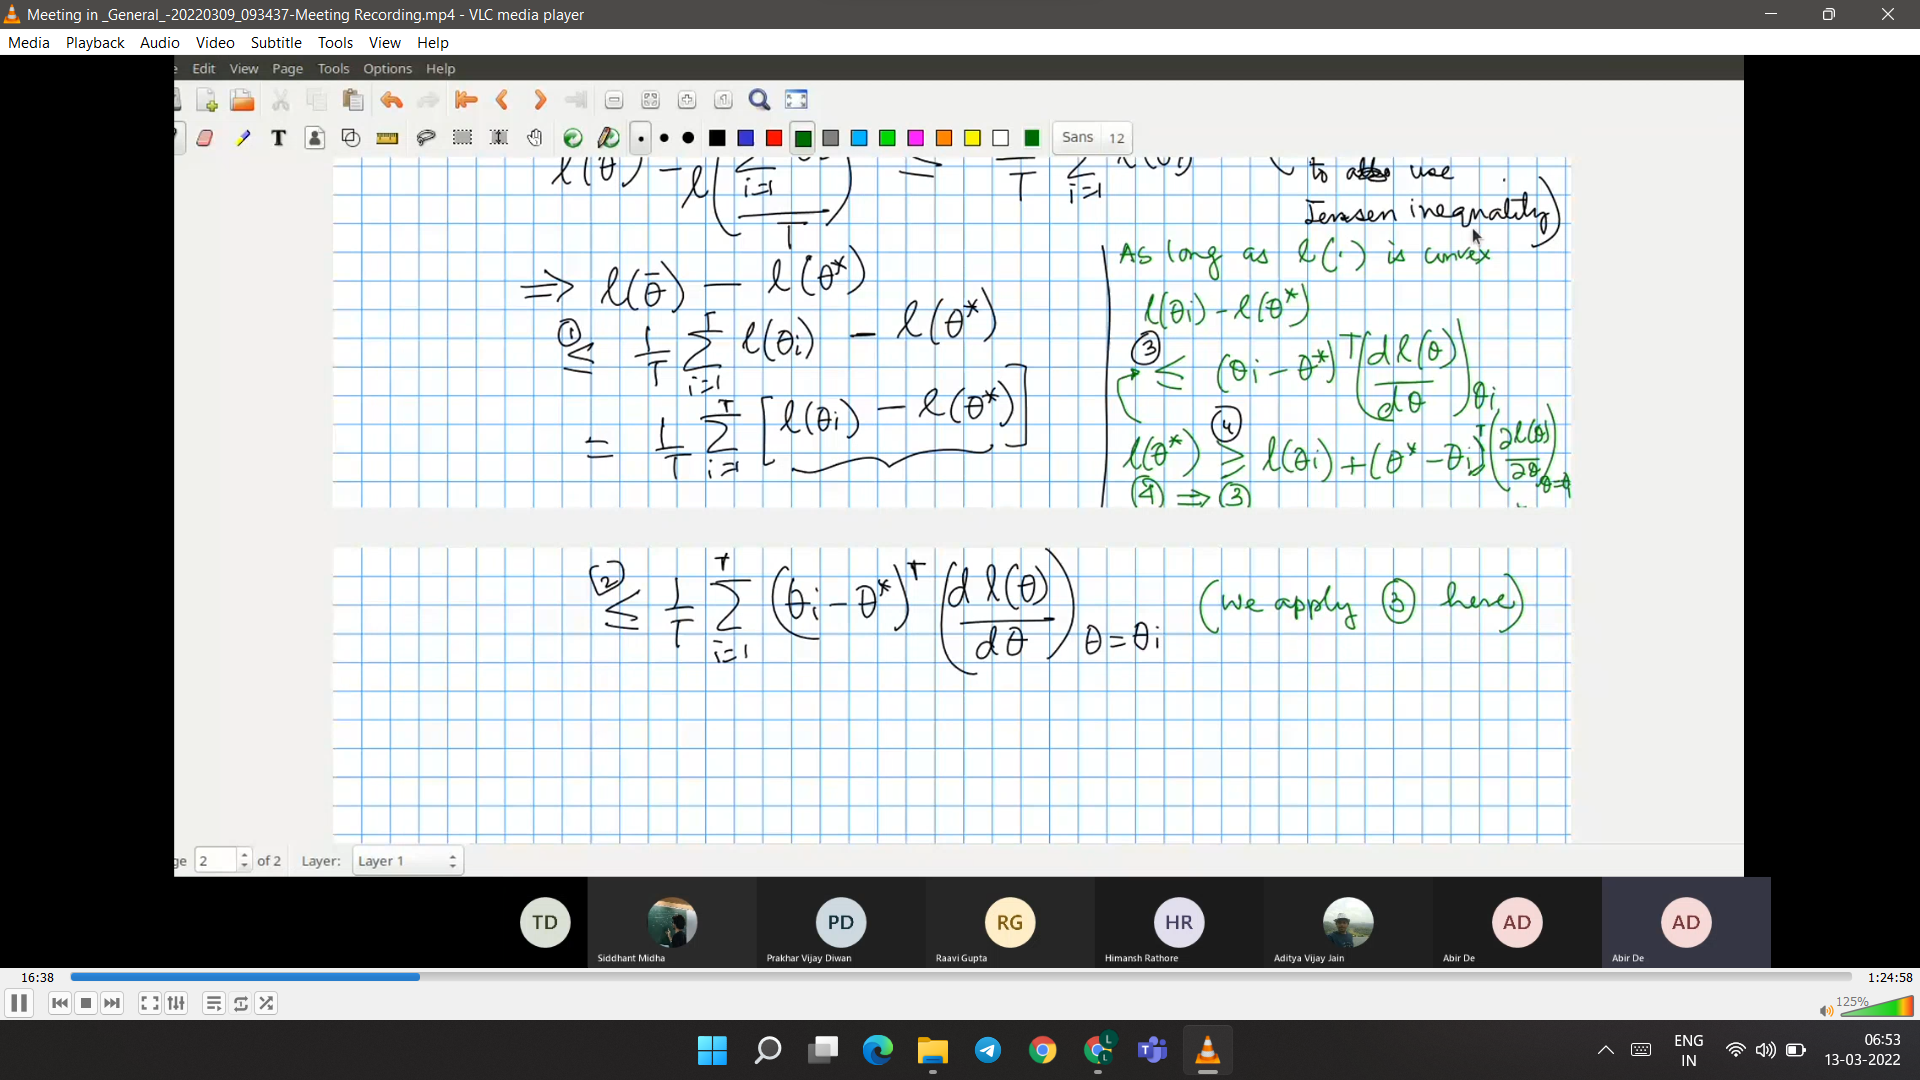 Meeting in _General_-20220309_093437-Meeting Recording.mp4 - VLC media player
Media Playback Audio Video Subtitle Tools View Help
e Edit View Page Tools Options Help
T Sans 12
l(θ̄) - l( Σ i=1 / T ) ≤ 1/T Σ i=1 l(θi)
( to use
Jensen inequality)
As long as l(·) is convex
⇒ l(θ̄) — l(θ*)
l(θi) - l(θ*)
① ≤ 1/T Σ_{i=1}^{T} l(θi) - l(θ*)
③ ≤ (θi - θ*)^T (dl(θ)/dθ)_{θi}
= 1/T Σ_{i=1}^{T} [l(θi) - l(θ*)]
l(θ*) ④ ≥ l(θi) + (θ* - θi)^T (∂l(θ)/∂θ)
④ ⇒ ③
② ≤ 1/T Σ_{i=1}^{T} (θi - θ*)^T (dl(θ)/dθ)_{θ=θi} (We apply ③ here)
ge 2 of 2 Layer: Layer 1
TD PD RG HR AD AD
Siddhant Midha Prakhar Vijay Diwan Raavi Gupta Himansh Rathore Aditya Vijay Jain Abir De Abir De
16:38 1:24:58
125%
L
L
ENG
IN
06:53
13-03-2022